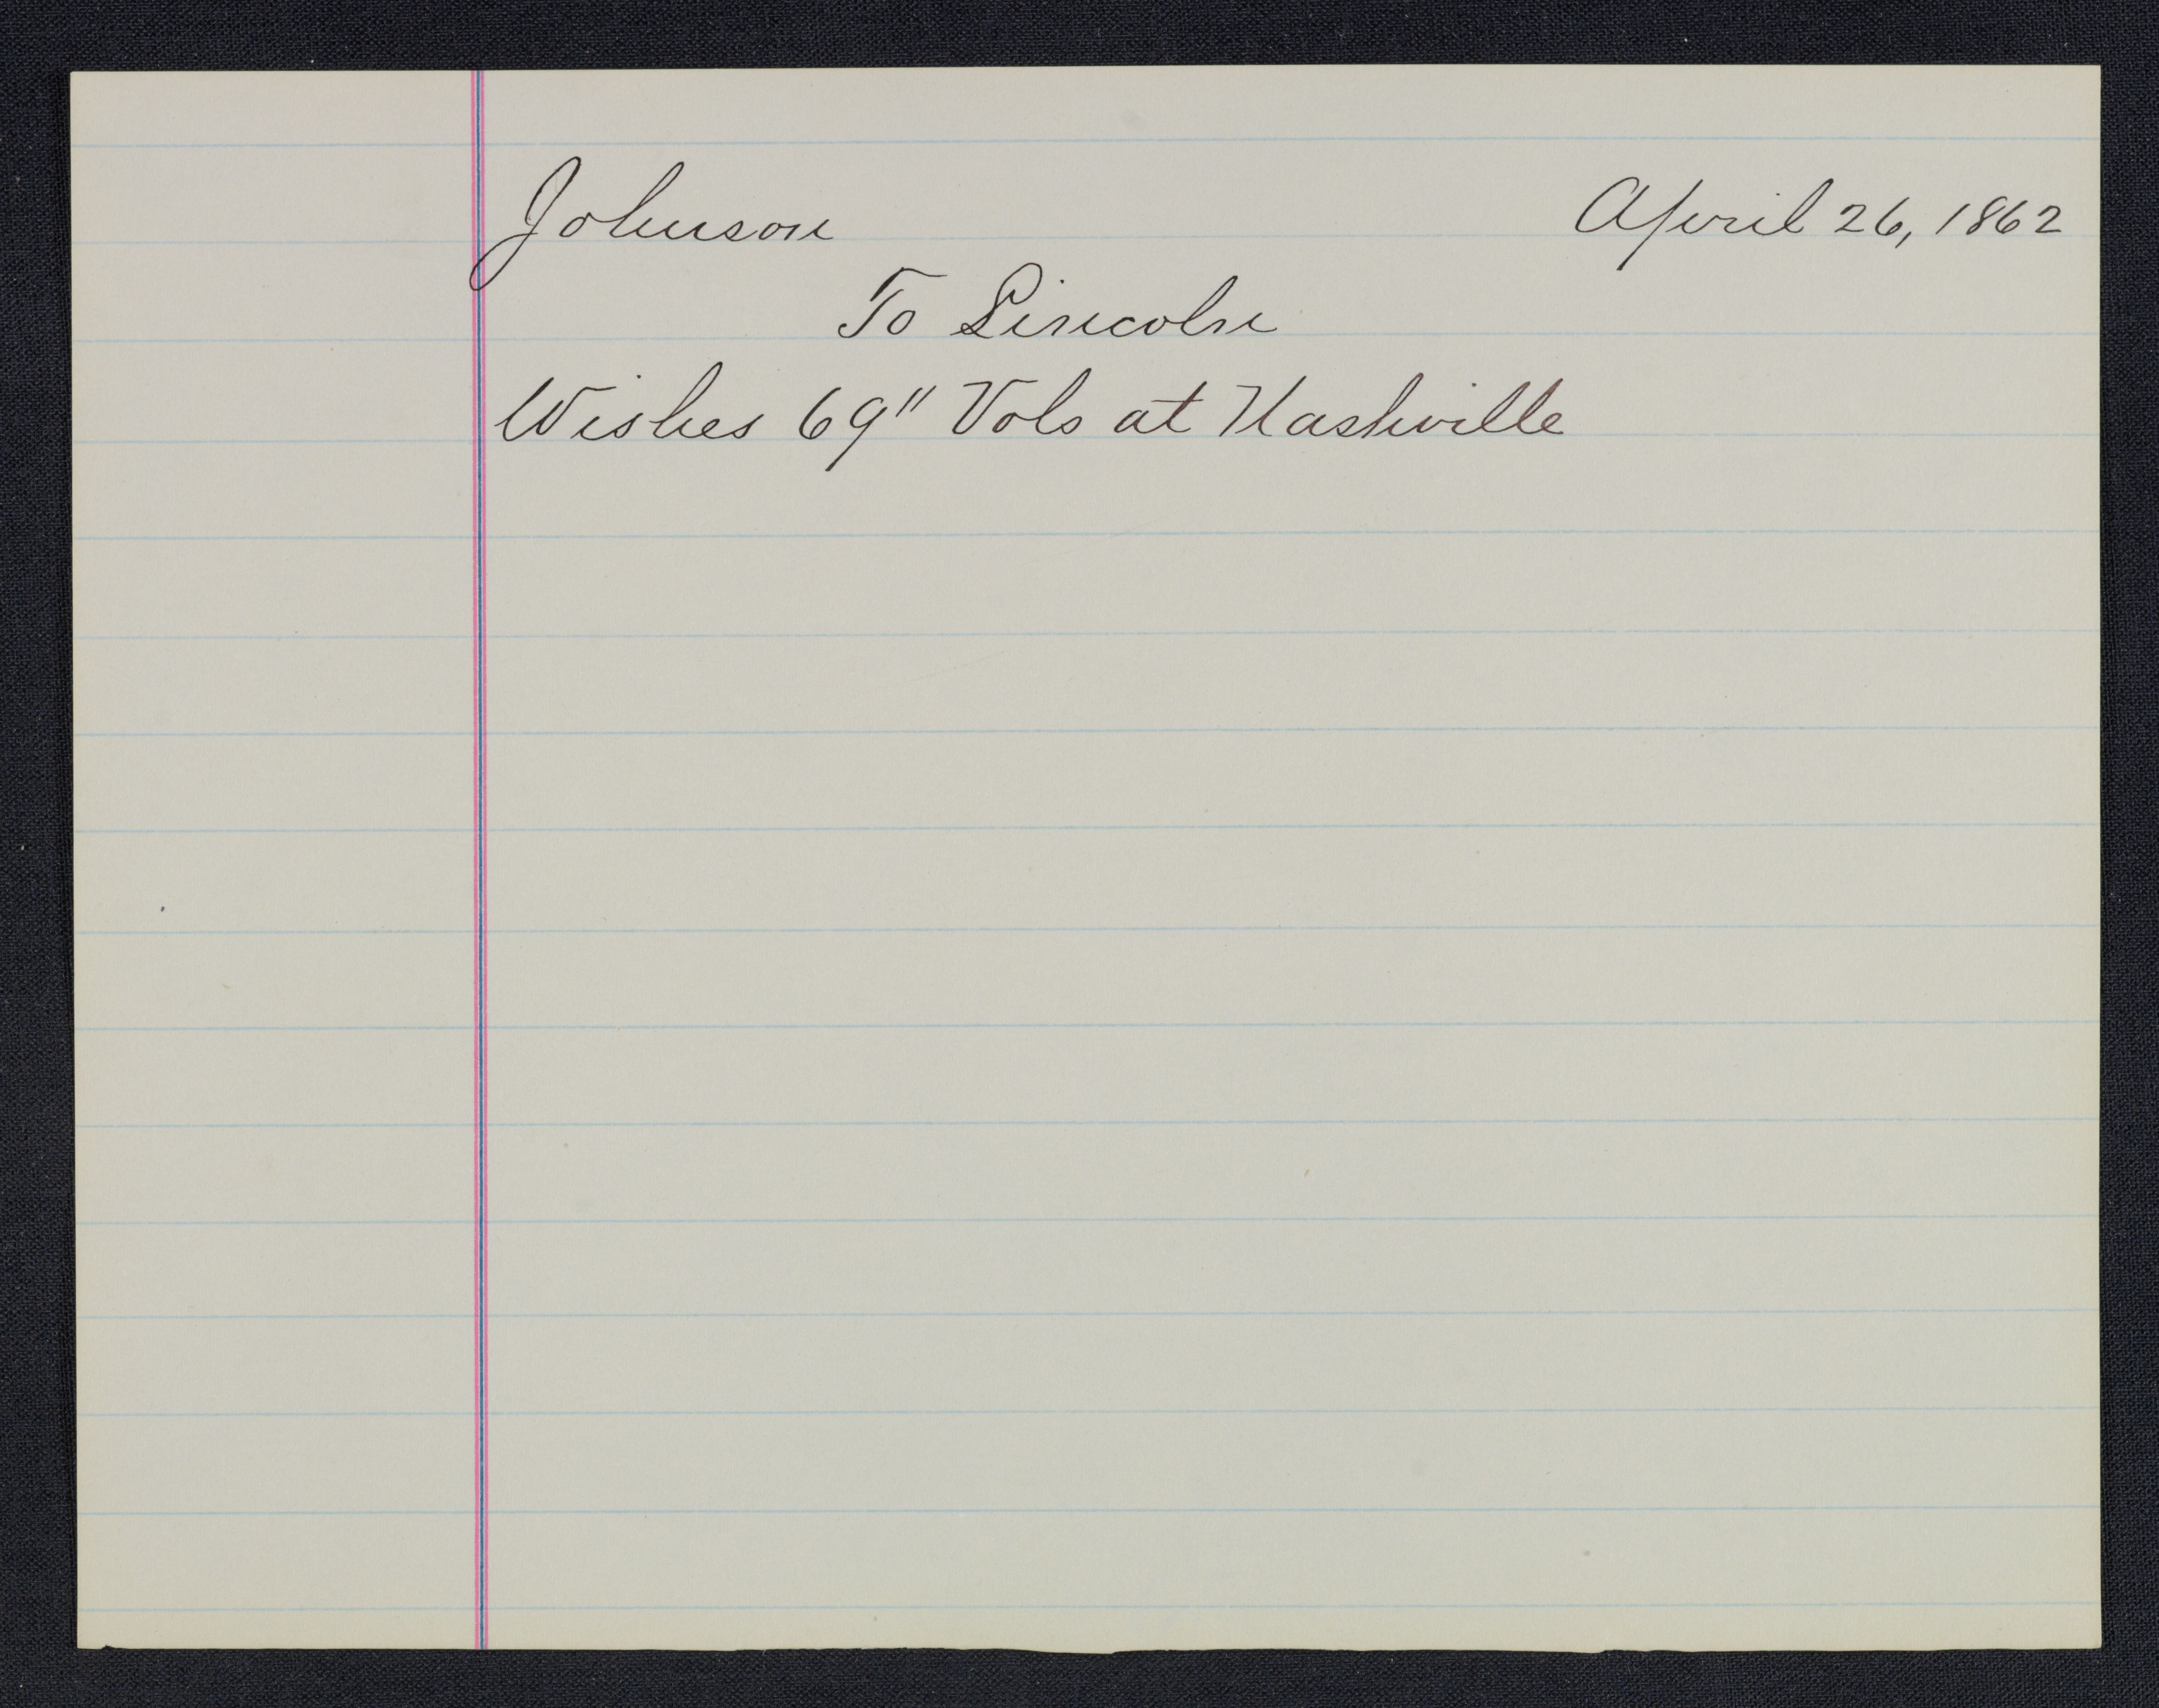 Johnson April 26, 1862
To Lincoln
Wishes 69" Vols at Nashville